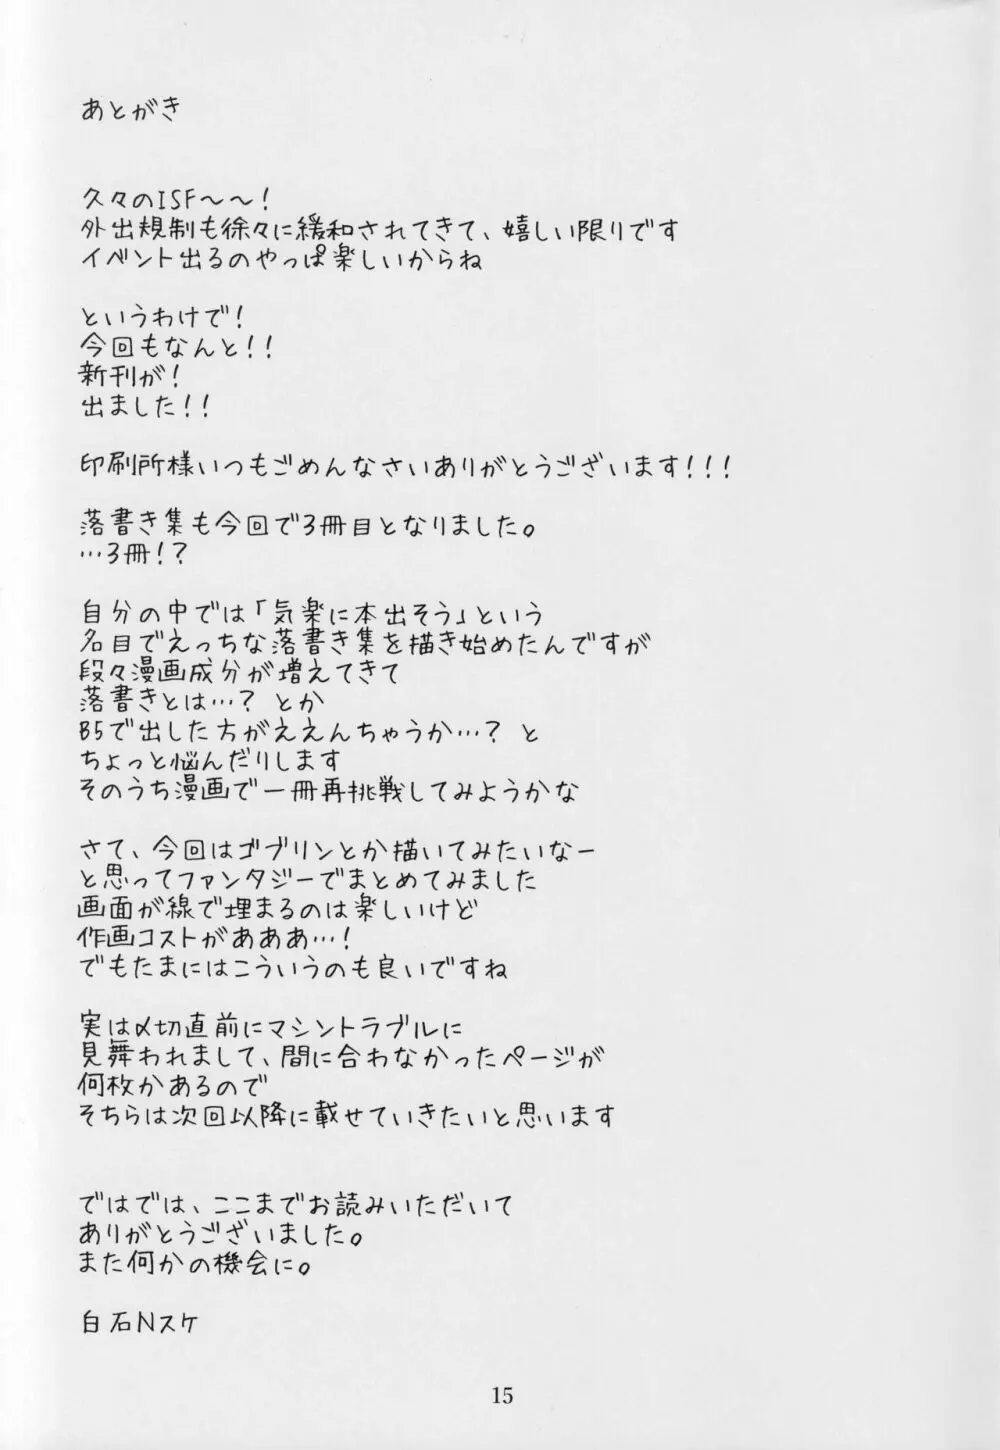 あとがき
久々のISF～～!
外出規制も徐々に緩和されてきて、嬉しい限りです
イベント出るのやっぱ楽しいからね
というわけで!
今回もなんと!!
新刊が!
出ました!!
印刷所様いつもごめんなさいありがとうございます!!!
落書き集も今回で3冊目となりました。
…3冊!?
自分の中では「気楽に本出そう」という
名目でえっちな落書き集を描き始めたんですが
段々漫画成分が増えてきて
落書きとは…? とか
B5で出した方がええんちゃうか…? と
ちょっと悩んだりします
そのうち漫画で一冊再挑戦してみようかな
さて、今回はゴブリンとか描いてみたいなー
と思ってファンタジーでまとめてみました
画面が線で埋まるのは楽しいけど
作画コストがあああ…!
でもたまにはこういうのも良いですね
実は〆切直前にマシントラブルに
見舞われまして、間に合わなかったページが
何枚かあるので
そちらは次回以降に載せていきたいと思います
ではでは、ここまでお読みいただいて
ありがとうございました。
また何かの機会に。
白石Nスケ
15